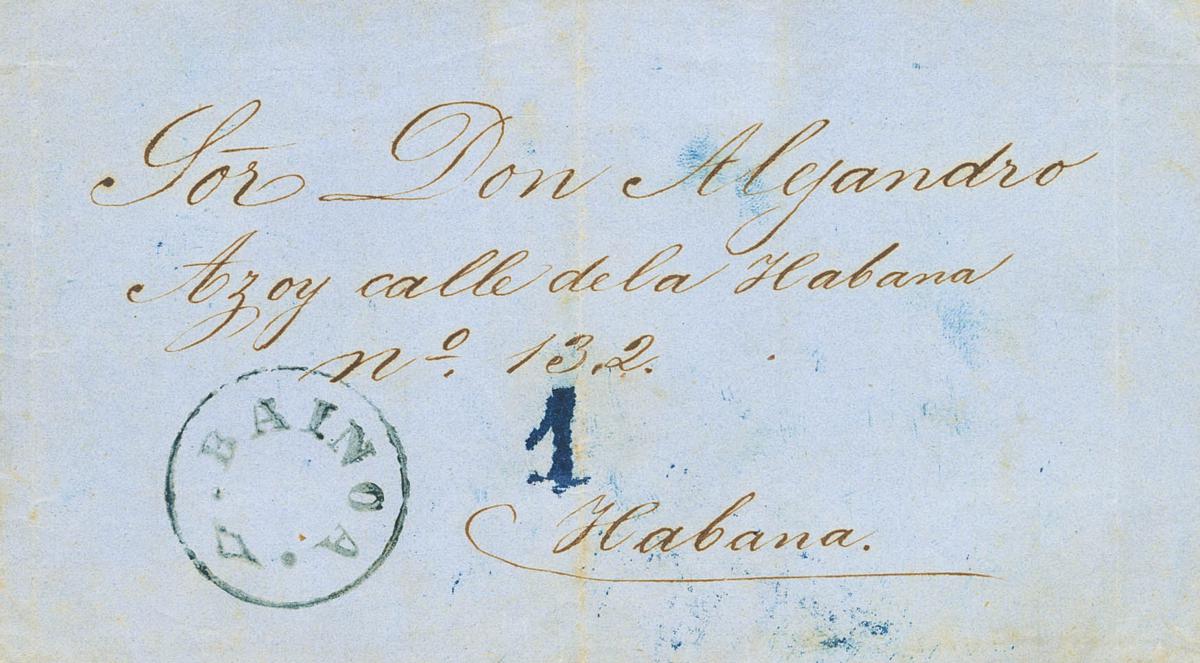 Sōr Don Alejandro
Azoy calle de la Habana
nº. 132.
1
Habana.
BAINOA